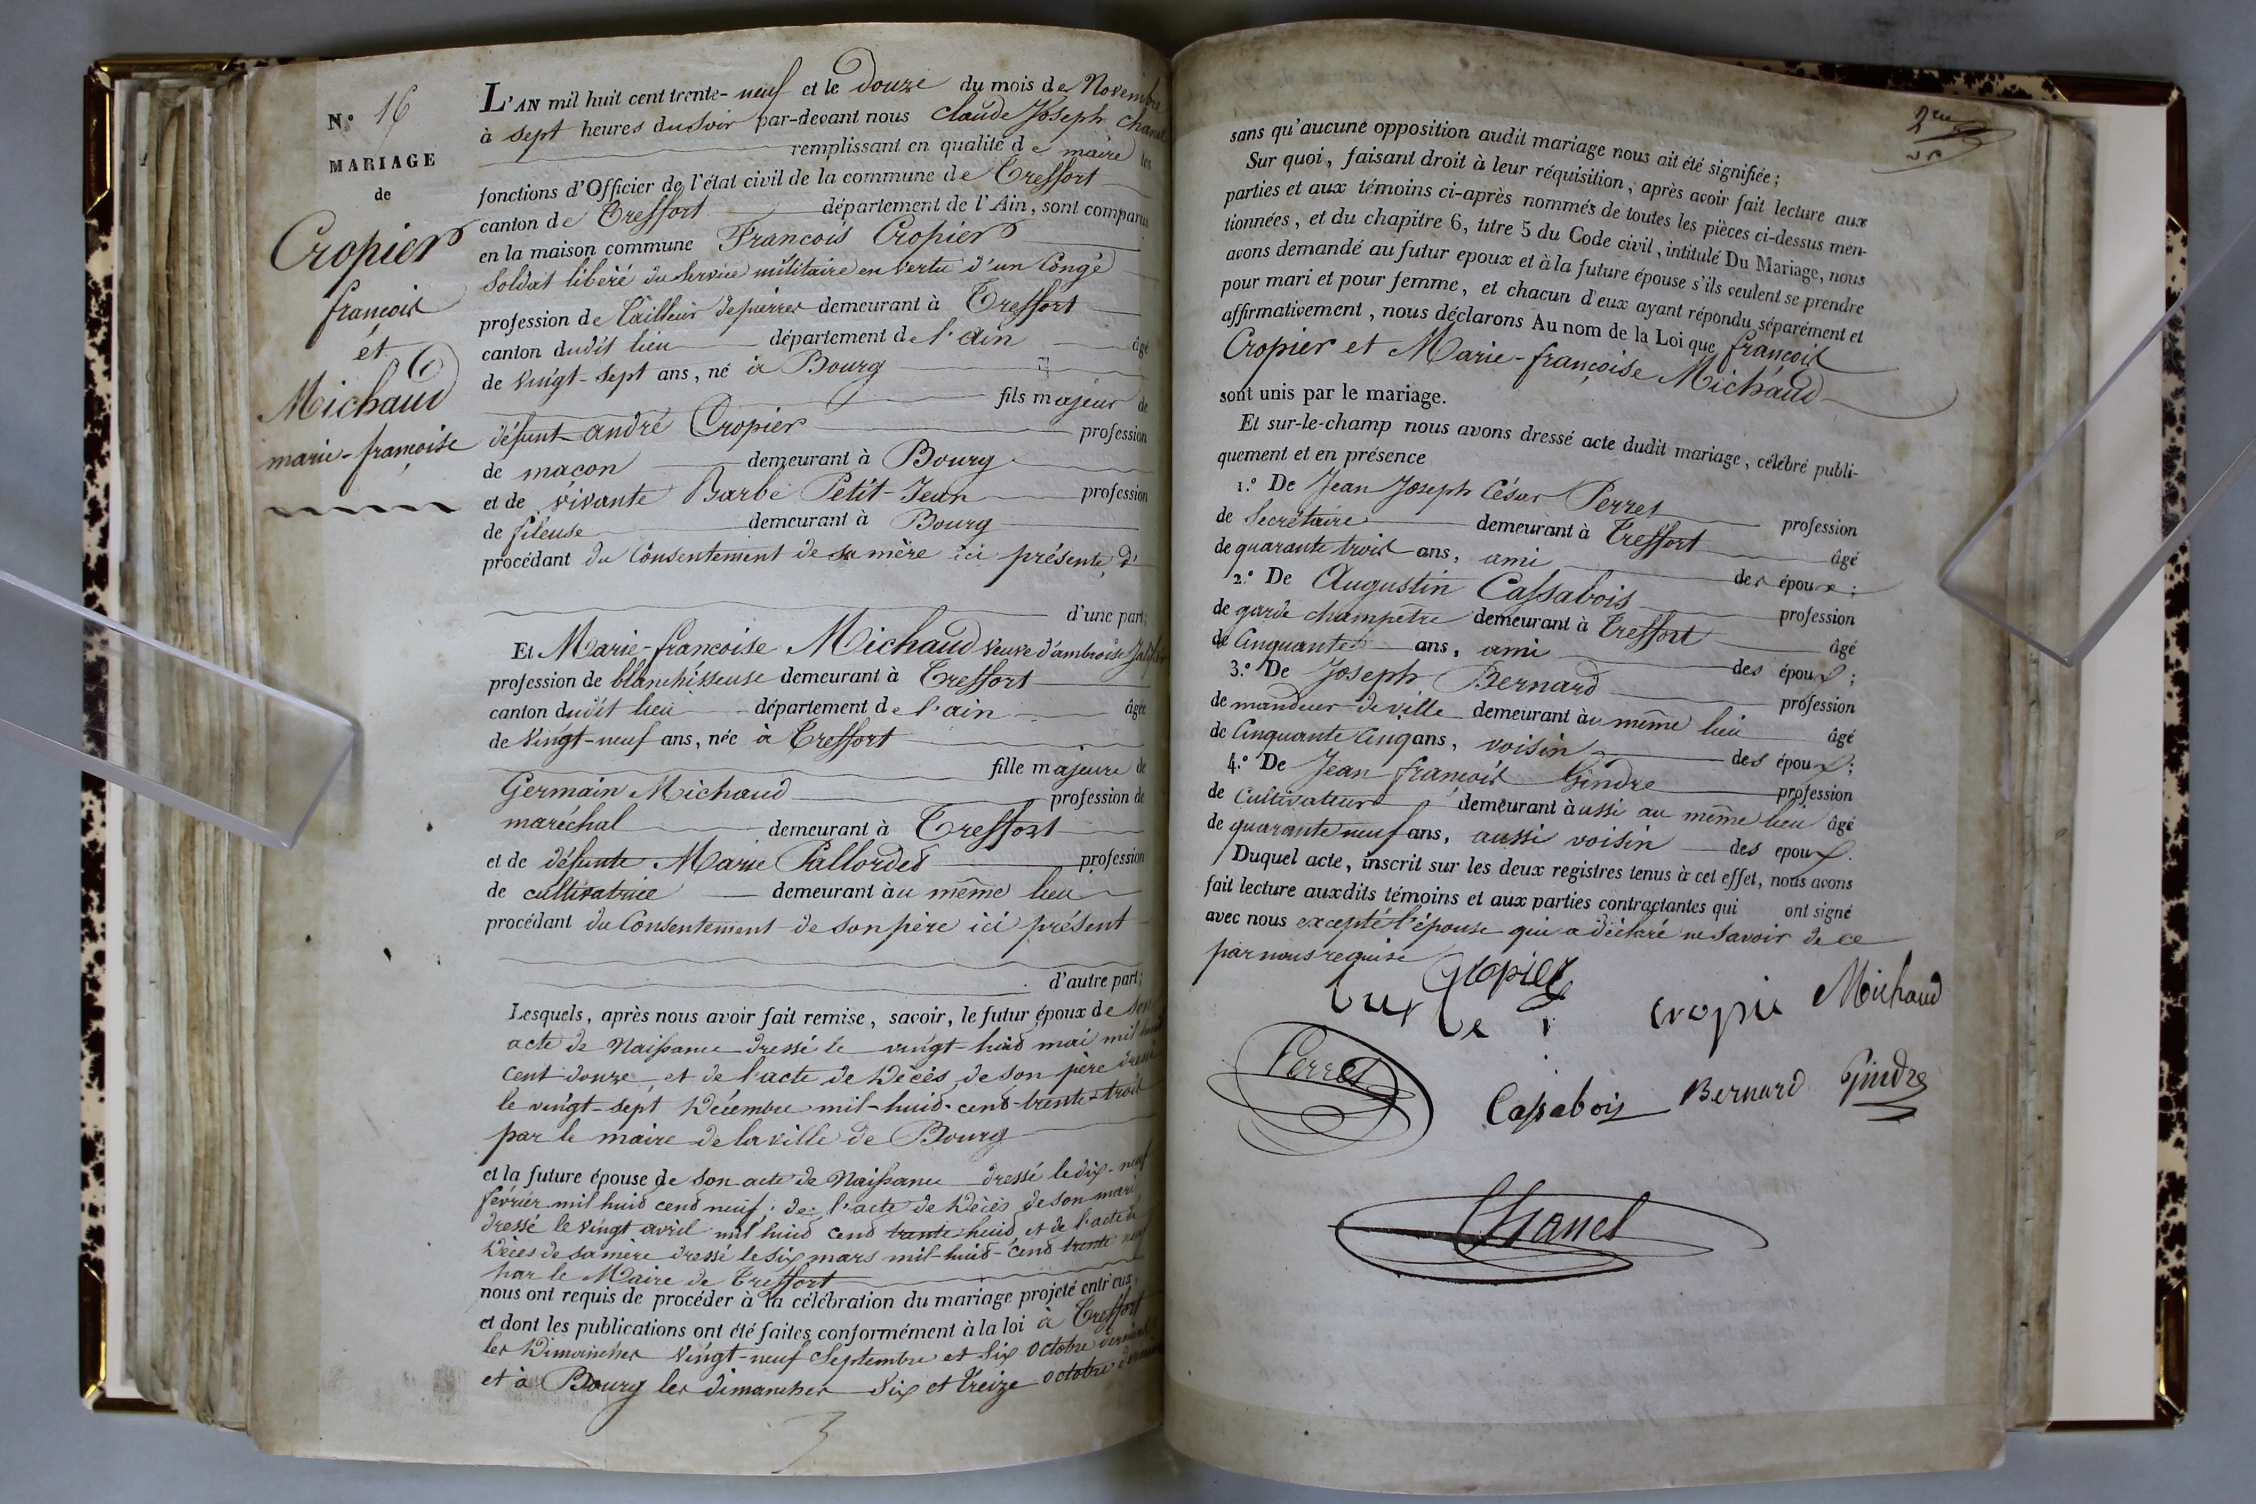 N.° 16
MARIAGE
de
Cropier
françois
et
Michaud
marie-françoise
L'AN mil huit cent trente-neuf et le Douze du mois de Novembre
à sept heures du soir par-devant nous Claude Joseph Chanel
remplissant en qualité de maire les
fonctions d'Officier de l'état civil de la commune de Treffort
canton de Treffort département de l'Ain, sont comparus
en la maison commune François Cropier
Soldat libéré du Service militaire en vertu d'un Congé
profession de Tailleur de pierres demeurant à Treffort
canton dudit lieu département de l'ain âgé
de vingt-sept ans, né à Bourg
fils majeur de
défunt andré Cropier profession
de maçon demeurant à Bourg
et de vivante Barbe Petit-Jean profession
de fileuse demeurant à Bourg
procédant du Consentement de sa mère ici présente
d'une part;
Et Marie-françoise Michaud veuve d'ambroise
profession de blanchisseuse demeurant à Treffort
canton dudit lieu département de l'ain âgée
de vingt-neuf ans, née à Treffort
fille majeure de
Germain Michaud profession de
maréchal demeurant à Treffort
et de défunte Marie Pallordet profession
de cultivatrice demeurant au même lieu
procédant du Consentement de son père ici présent
d'autre part;
Lesquels, après nous avoir fait remise, savoir, le futur époux de son
acte de Naissance dressé le vingt-huit mai mil huit
cent douze, et de l'acte de Décès de son père dressé
le vingt-sept Décembre mil-huit-cent-trente-trois
par le maire de la ville de Bourg
et la future épouse de son acte de Naissance dressé le dix-neuf
février mil huit cent neuf; de l'acte de Décès de son mari
dressé le vingt avril mil huit cent trente huit, et de l'acte de
Décès de sa mère dressé le six mars mil-huit-cent trente neuf
par le Maire de Treffort
nous ont requis de procéder à la célébration du mariage projeté entr'eux,
et dont les publications ont été faites conformément à la loi à Treffort
les Dimanches vingt-neuf Septembre et six octobre derniers
et à Bourg les dimanches six et treize octobre derniers
sans qu'aucune opposition audit mariage nous ait été signifiée;
Sur quoi, faisant droit à leur réquisition, après avoir fait lecture aux
parties et aux témoins ci-après nommés de toutes les pièces ci-dessus men-
tionnées, et du chapitre 6, titre 5 du Code civil, intitulé Du Mariage, nous
avons demandé au futur epoux et à la future épouse s'ils veulent se prendre
pour mari et pour femme, et chacun d'eux ayant répondu séparément et
affirmativement, nous déclarons Au nom de la Loi que françois
Cropier et Marie-françoise Michaud
sont unis par le mariage.
Et sur-le-champ nous avons dressé acte dudit mariage, célébré publi-
quement et en présence
1.° De Jean Joseph César Perret profession
de Secrétaire demeurant à Treffort âgé
de quarante trois ans, ami des époux;
2.° De Augustin Cassabois profession
de garde champêtre demeurant à Treffort âgé
de Cinquante ans, ami des époux;
3.° De Joseph Bernard profession
de mandeur de ville demeurant au même lieu âgé
de Cinquante Cinq ans, voisin des époux;
4.° De Jean françois Gindre profession
de Cultivateur demeurant aussi au même lieu âgé
de quarante neuf ans, aussi voisin des epoux.
Duquel acte, inscrit sur les deux registres tenus à cet effet, nous avons
fait lecture auxdits témoins et aux parties contractantes qui ont signé
avec nous excepté l'épouse qui a déclaré ne savoir de ce
par nous requise
Cropier
cropie Michaud
Perret
Cassabois Bernard Gindre
Chanel